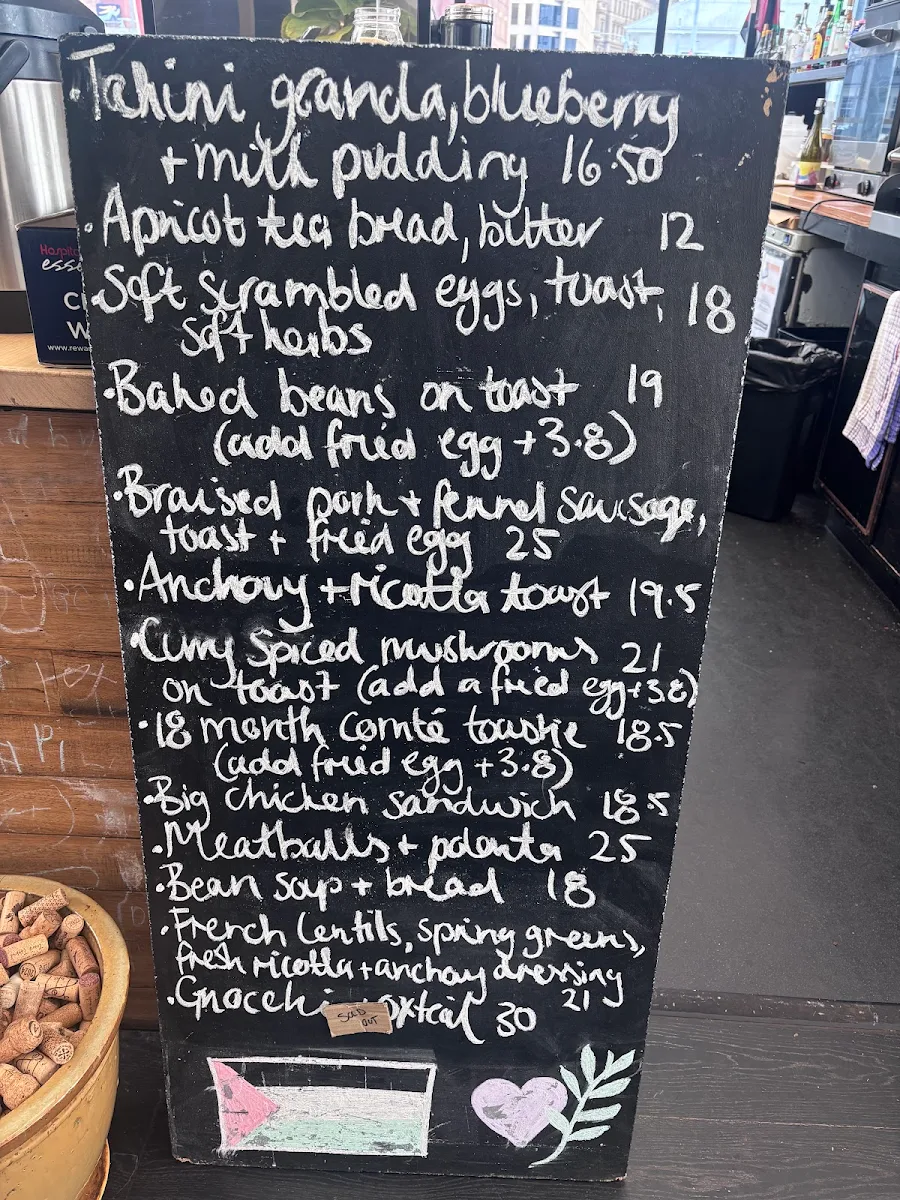 ·Tahini granola, blueberry
+ milk pudding 16.50
·Apricot tea bread, butter 12
·Soft scrambled eggs, toast, 18
soft herbs
·Baked beans on toast 19
(add fried egg +3.8)
·Braised pork + fennel sausage,
toast + fried egg 25
·Anchovy + ricotta toast 19.5
·Curry spiced mushrooms 21
on toast (add a fried egg +3.8)
·18 month comté toastie 18.5
(add fried egg +3.8)
·Big chicken sandwich 18.5
·Meatballs + polenta 25
·Bean soup + bread 18
·French lentils, spring greens,
fresh ricotta + anchovy dressing
21
·Gnocchi oxtail 30
SOLD
OUT
Hospit
esse
C
W
www.rewa